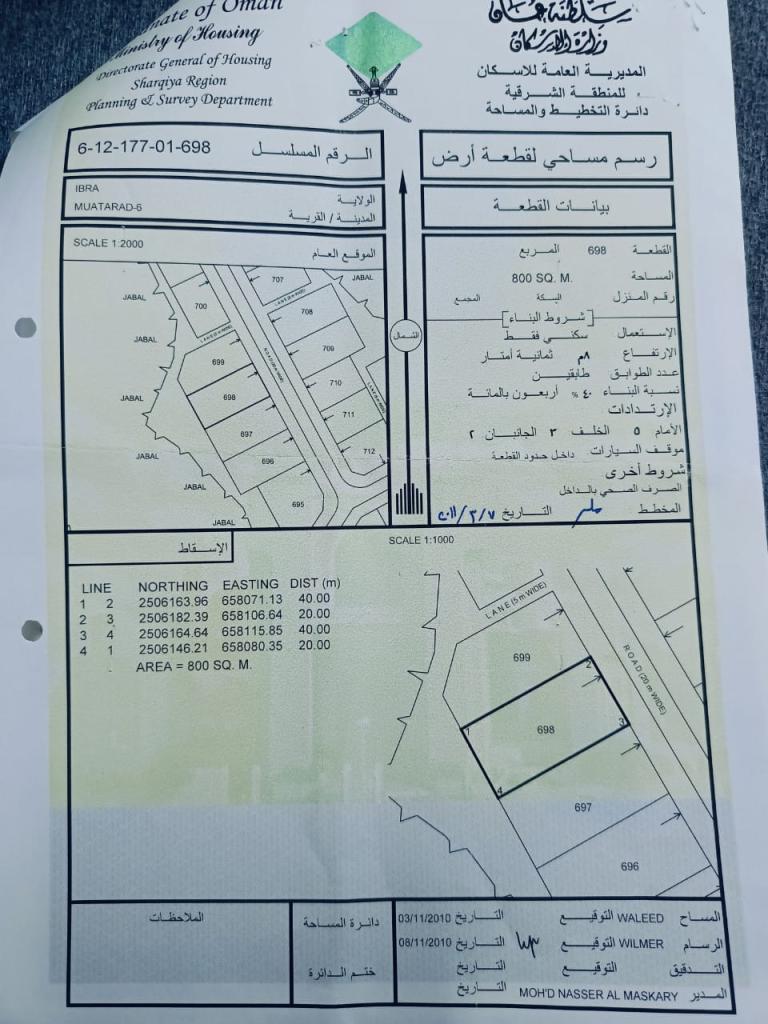 ate of Oman
Ministry of Housing
Directorate General of Housing
Sharqiya Region
Planning & Survey Department
سلطنة عمان
وزارة الإسكان
المديرية العامة للاسكان
للمنطقة الشرقية
دائرة التخطيط والمساحة
6-12-177-01-698 الرقم المسلسل
رسم مساحي لقطعة أرض
IBRA الولاية
MUATARAD-6 المدينة / القرية
بيانات القطعة
SCALE 1:2000 الموقع العام
JABAL
707
JABAL
LANE (5 m WIDE)
700
708
JABAL
LANE (5 m WIDE)
699
709
ROAD (20 m WIDE)
JABAL
698
710
697
711
JABAL
696
712
JABAL
695
JABAL
الشمال
القطعة 698 المربع
المساحة 800 SQ. M.
رقم المنزل السكة المجمع
[شروط البناء]
الإستعمال سكني فقط
الإرتفاع ٨م ثمانية أمتار
عدد الطوابق طابقين
نسبة البناء ٤٠ % أربعون بالمائة
الإرتدادات
الأمام ٥ الخلف ٣ الجانبان ٢
موقف السيارات داخل حدود القطعة
شروط أخرى
الصرف الصحي بالداخل
المخطط التاريخ ٢٠١١/٣/٧
الإسقاط
SCALE 1:1000
LINE NORTHING EASTING DIST (m)
1 2 2506163.96 658071.13 40.00
2 3 2506182.39 658106.64 20.00
3 4 2506164.64 658115.85 40.00
4 1 2506146.21 658080.35 20.00
AREA = 800 SQ. M.
LANE (5 m WIDE)
699
2
ROAD (20 m WIDE)
1
698
3
4
697
696
الملاحظات
دائرة المساحة
ختم الدائرة
المساح WALEED التوقيع التاريخ 03/11/2010
الرسام WILMER التوقيع التاريخ 08/11/2010
التدقيق التوقيع التاريخ
المدير MOH'D NASSER AL MASKARY التاريخ